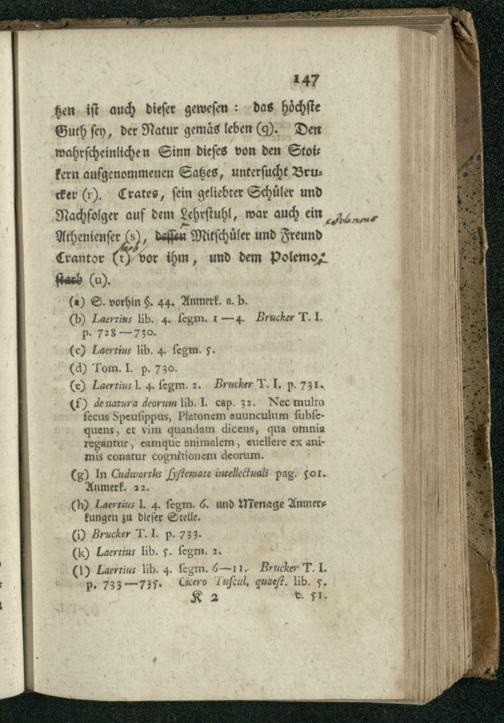 147
tzen ist auch dieser gewesen: das höchste
Guth sey, der Natur gemäs leben (q). Den
wahrscheinlichen Sinn dieses von den Stoi-
kern aufgenommenen Satzes, untersucht Bru-
cker (r). Crates, sein geliebter Schüler und
Nachfolger auf dem Lehrstuhl, war auch ein
Athenienser (s), dessen Mitschüler und Freund
Crantor (t) starb vor ihm, und dem Polemo,
starb (u).
(a) S. vorhin §. 44. Anmerk. a. b.
(b) Laertius lib. 4. segm. 1—4. Brucker T. I.
p. 728—730.
(c) Laertius lib. 4. segm. 5.
(d) Tom. I. p. 730.
(e) Laertius l. 4. segm. 2. Brucker T. I. p. 731.
(f) de natura deorum lib. I. cap. 32. Nec multo
secus Speusippus, Platonem auunculum subse-
quens, et vim quandam dicens, qua omnia
regantur, eamque animalem, euellere ex ani-
mis conatur cognitionem deorum.
(g) In Cudworths systemate intellectuali pag. 501.
Anmerk. 22.
(h) Laertius l. 4. segm. 6. und Menage Anmer-
kungen zu dieser Stelle.
(i) Brucker T. I. p. 733.
(k) Laertius lib. 5. segm. 2.
(l) Laertius lib. 4. segm. 6—11. Brucker T. I.
p. 733—735. Cicero Tuscul. quaest. lib. 5.
K 2 c. 51.